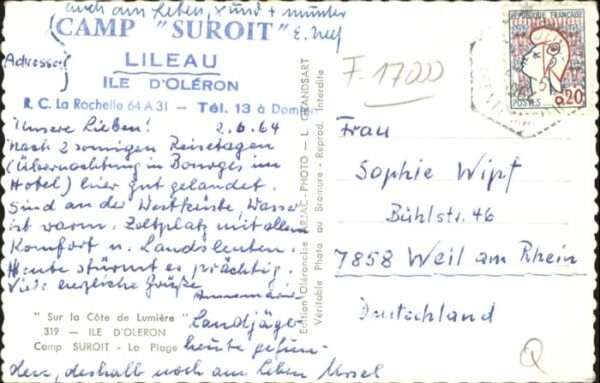 auch am Leben, xund + munter
E. Neef
CAMP "SUROIT"
Adresse:
LILEAU
ILE D'OLÉRON
R. C. La Rochelle 64 A 31 - Tél. 13 à Dom
Unsere Lieben! 2.6.64
Nach 2 sonnigen Reisetagen
(Übernachtung in Bourges im
Hotel) hier gut gelandet.
Sind an der Westküste, Wasser
ist warm. Zeltplatz mit allem
Komfort u. Landsleuten.
Heute stürmt es prächtig.
Viele herzliche Grüße
Annemarie
Landjäger
heute gefun-
den, deshalb noch am Leben Ursel
"Sur la Côte de Lumière"
319 - ILE D'OLERON
Camp SUROIT - La Plage
Edition Oléronaise - PHOTO - L. GRANDSART
Véritable Photo au Bromure - Reprod. Interdite
F. 17000
REPUBLIQUE FRANCAISE
POSTES 0,20
Frau
Sophie Wipf
Bühlstr. 46
7858 Weil am Rhein
Deutschland
Q